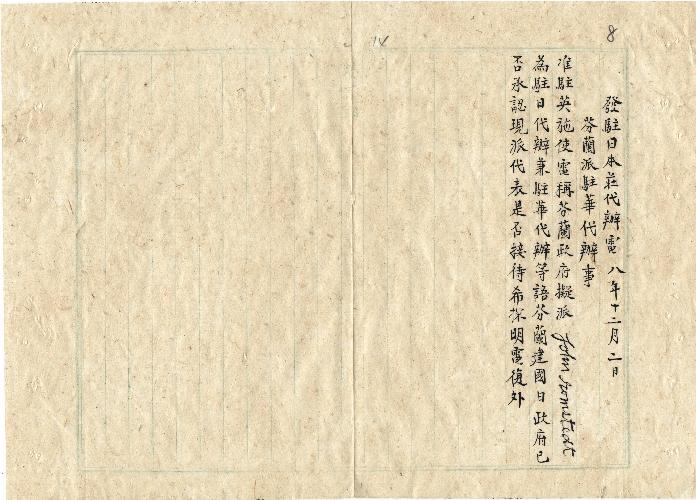 8
發駐日本莊代辦電 八年十二月二日
芬蘭派駐華代辦事
准駐英施使電稱芬蘭政府擬派 John Romstedt
為駐日代辦兼駐華代辦等語芬蘭建國日政府已
否承認現派代表是否接待希探明電復外